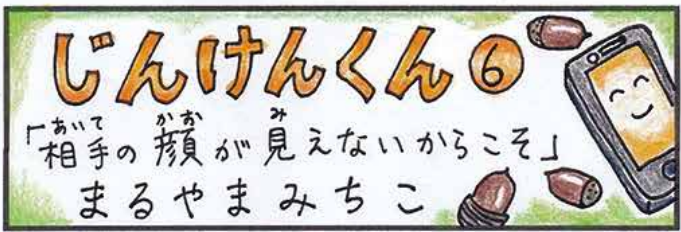 じんけんくん⑥
「相手の顔が見えないからこそ」
まるやまみちこ